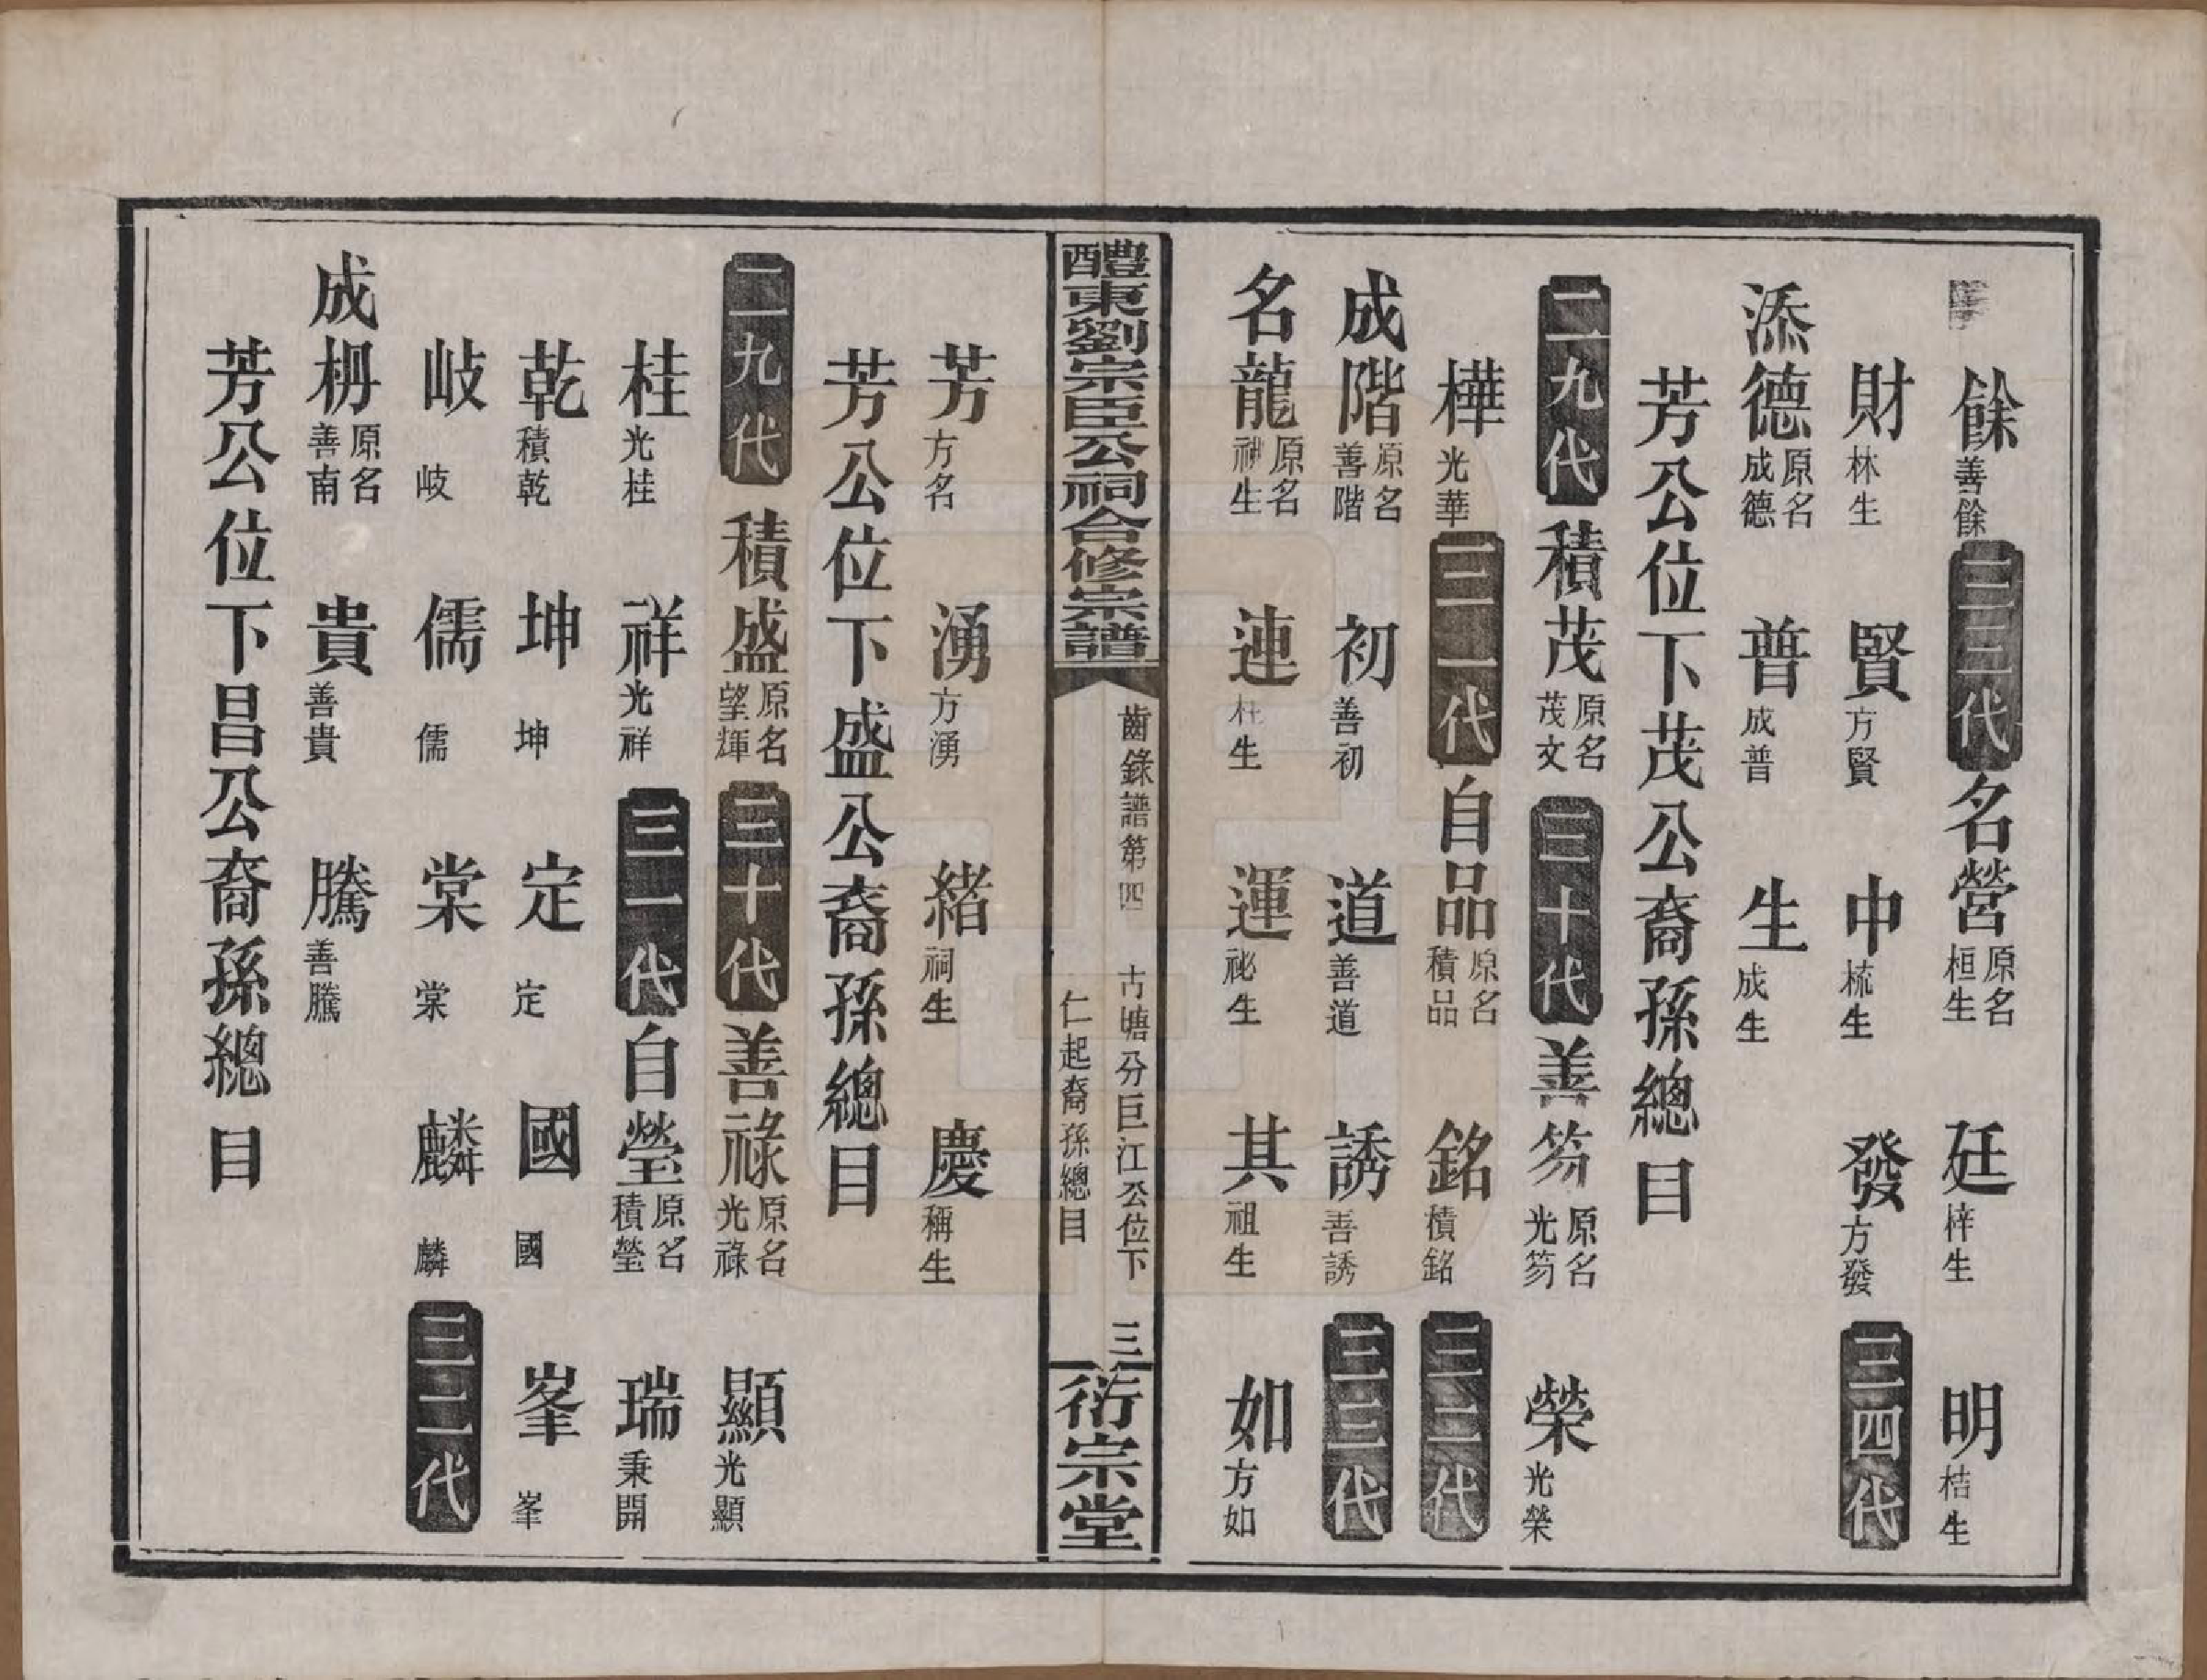 餘善餘 三三代 名營原名桓生 廷梓生 明桔生
財林生 賢方賢 中梳生 發方發 三四代
添德原名成德 普成普 生成生
芳公位下茂公裔孫總目
二九代 積茂原名茂文 三十代 善笏原名光笏 榮光榮
樺光華 三一代 自品原名積品 銘積銘 三二代
成階原名善階 初善初 道善道 誘善誘 三三代
名龍原名神生 連生 運祕生 其祖生 如方如
醴東劉宗臣公祠合修宗譜 齒錄譜第四 古塘分巨江公位下 仁起裔孫總目 三 衍宗堂
芳方名 湧方湧 緒祠生 慶稱生
芳公位下盛公裔孫總目
二九代 積盛原名望輝 三十代 善祿原名光祿 顯光顯
桂光桂 祥光祥 三一代 自瑩原名積瑩 瑞秉開
乾積乾 坤坤 定定 國國 峯峯
岐岐 儒儒 棠棠 麟麟 三二代
成枬原名善南 貴善貴 騰善騰
芳公位下昌公裔孫總目